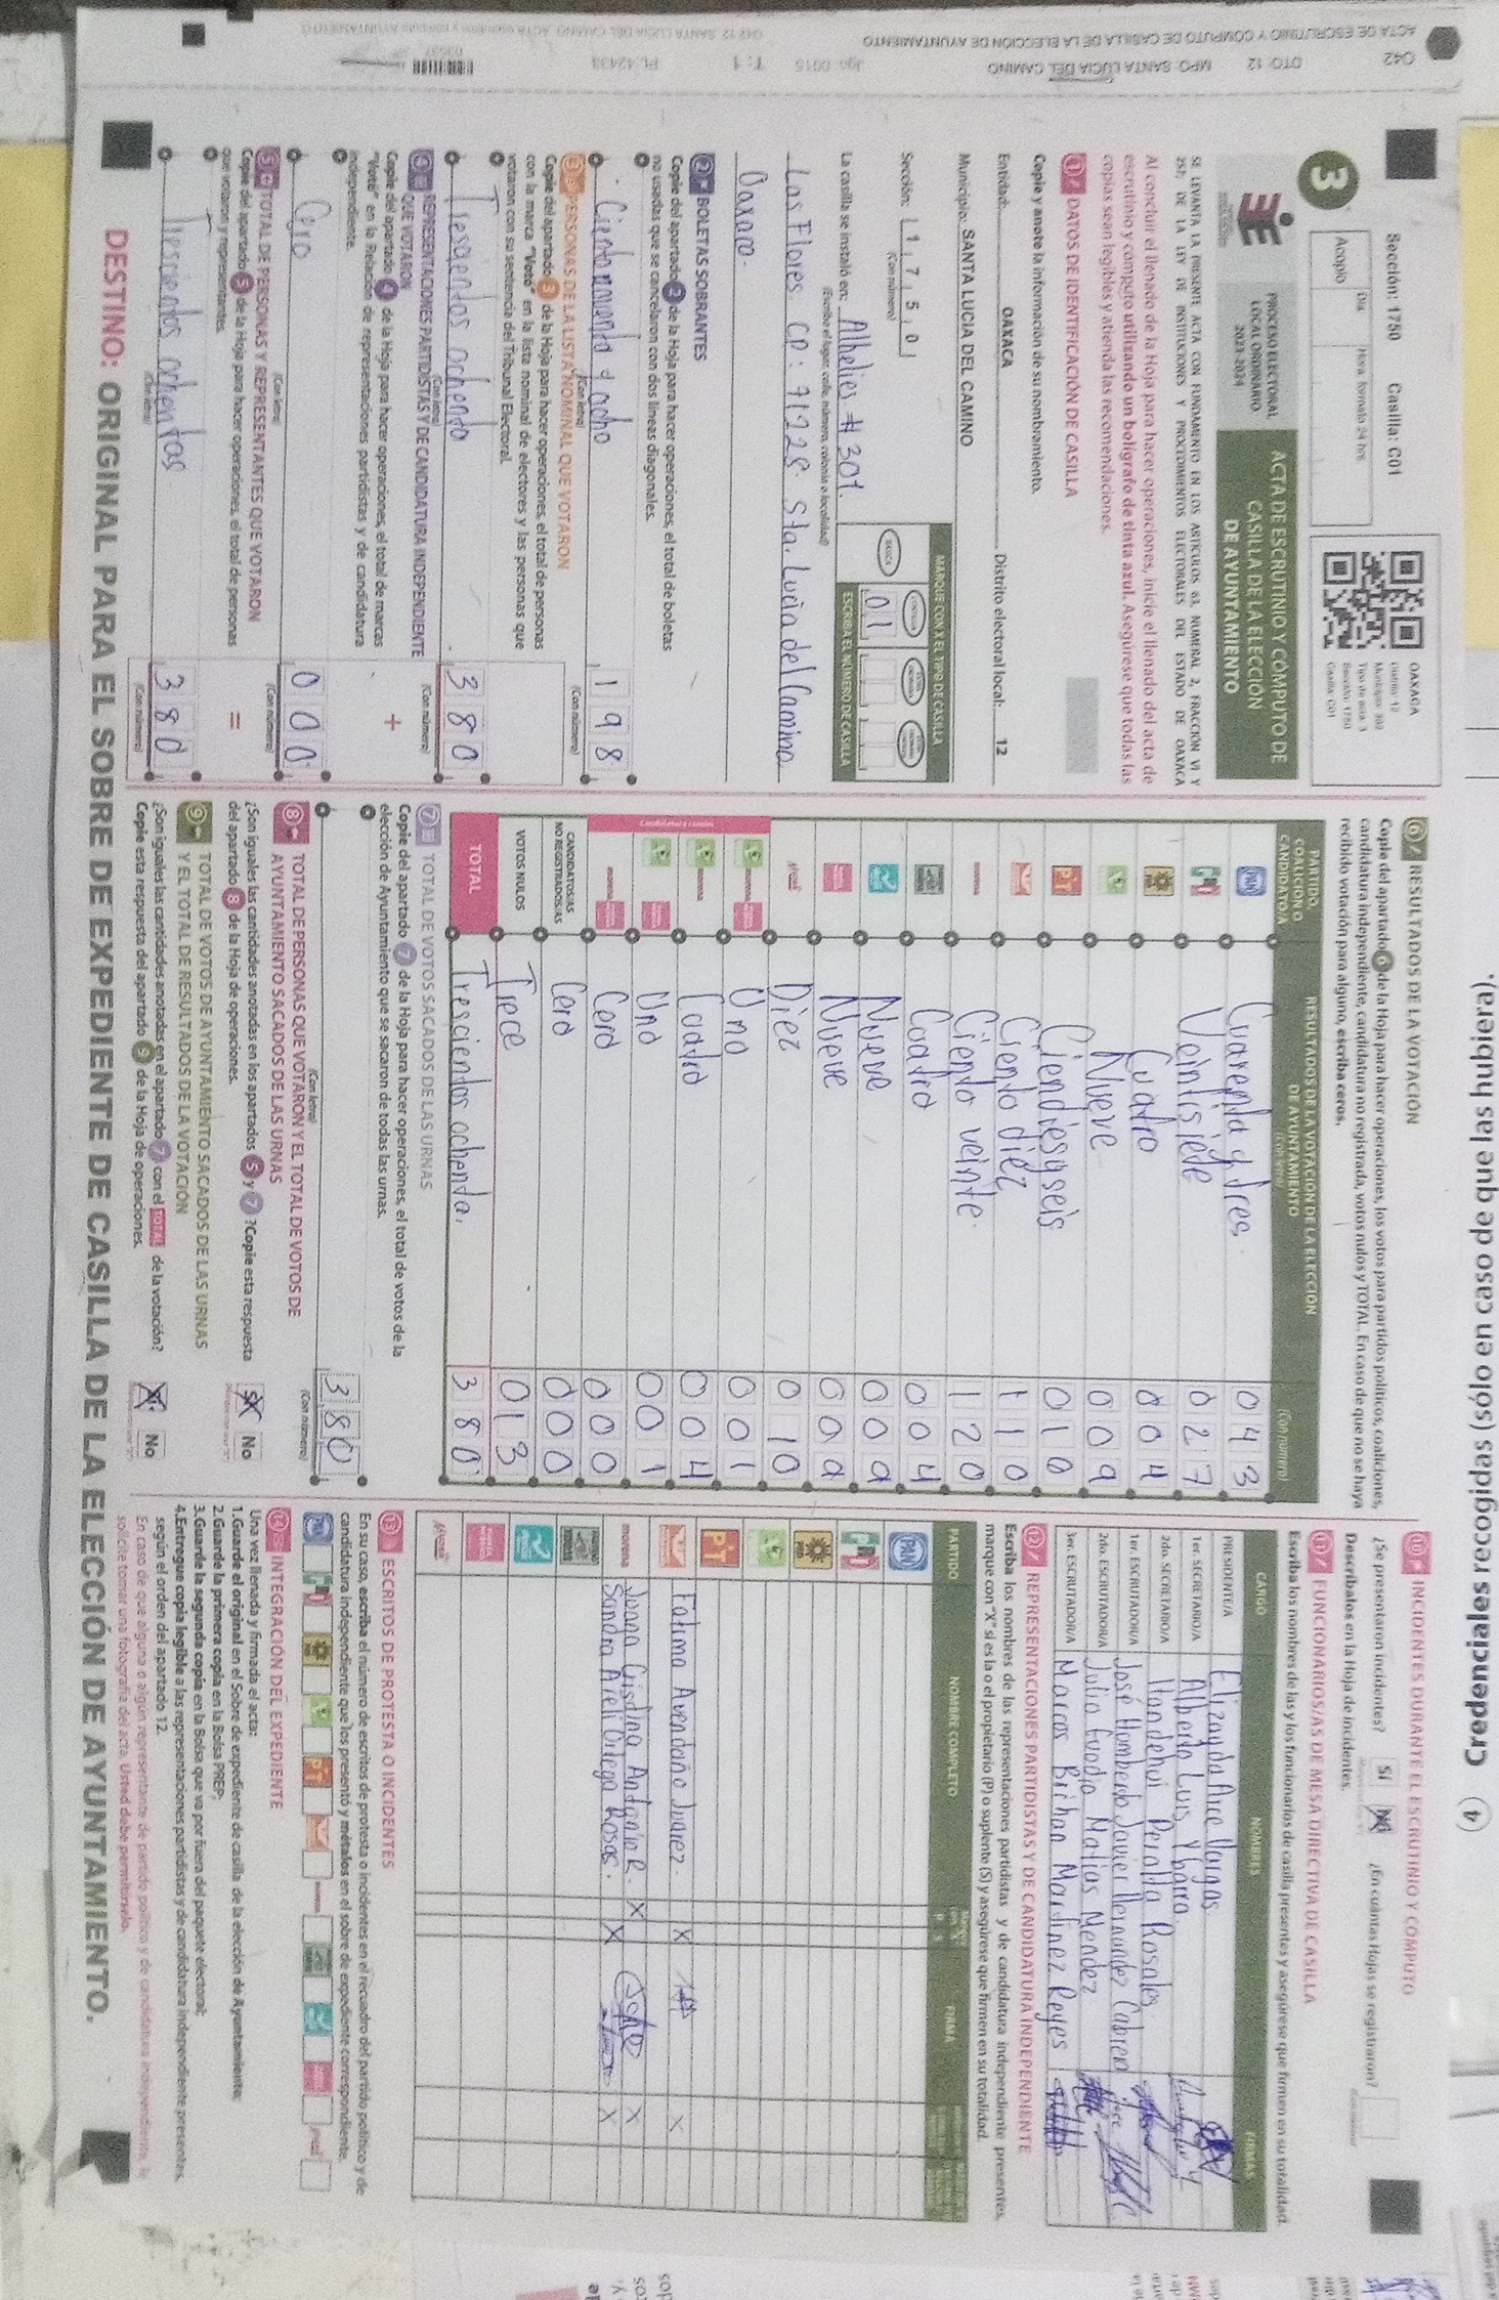 ④ Credenciales recogidas (sólo en caso de que las hubiera).
Sección: 1750 Casilla: C01
3
Día
Hora formato 24 hrs
Acopio
OAXACA
Distrito: 12
Tipo de acta: 3
Sección: 1750
Casilla: C01
PROCESO ELECTORAL
LOCAL ORDINARIO
2023-2024
ACTA DE ESCRUTINIO Y CÓMPUTO DE
CASILLA DE LA ELECCIÓN
DE AYUNTAMIENTO
SE LEVANTA LA PRESENTE ACTA CON FUNDAMENTO EN LOS ARTÍCULOS 63, NUMERAL 2, FRACCIÓN VI Y
257; DE LA LEY DE INSTITUCIONES Y PROCEDIMIENTOS ELECTORALES DEL ESTADO DE OAXACA
Al concluir el llenado de la Hoja para hacer operaciones, inicie el llenado del acta de
escrutinio y cómputo utilizando un bolígrafo de tinta azul. Asegúrese que todas las
copias sean legibles y atienda las recomendaciones.
1 DATOS DE IDENTIFICACIÓN DE CASILLA
Copie y anote la información de su nombramiento.
Entidad: OAXACA Distrito electoral local: 12
Municipio: SANTA LUCIA DEL CAMINO
Sección: 1 7 5 0
(Con número)
MARQUE CON X EL TIPO DE CASILLA
BÁSICA
ESCRIBA EL NÚMERO DE CASILLA
0 1
La casilla se instaló en: Alhelies #301.
(Escriba el lugar, calle, número, colonia o localidad)
Las Flores CP: 71228. Sta. Lucia del Camino
Oaxaca.
2 BOLETAS SOBRANTES
Copie del apartado 2 de la Hoja para hacer operaciones, el total de boletas
no usadas que se cancelaron con dos líneas diagonales.
Ciento noventa y ocho 1 9 8
(Con letra) (Con número)
3 PERSONAS DE LA LISTA NOMINAL QUE VOTARON
Copie del apartado 3 de la Hoja para hacer operaciones, el total de personas
con la marca "Votó" en la lista nominal de electores y las personas que
votaron con su sentencia del Tribunal Electoral.
Tresientos ochenta 3 8 0
(Con letra) (Con número)
4 REPRESENTACIONES PARTIDISTAS Y DE CANDIDATURA INDEPENDIENTE
QUE VOTARON
Copie del apartado 4 de la Hoja para hacer operaciones, el total de marcas
"Votó" en la Relación de representaciones partidistas y de candidatura
independiente.
+
Cero 0 0 0
(Con letra) (Con número)
5 TOTAL DE PERSONAS Y REPRESENTANTES QUE VOTARON
Copie del apartado 5 de la Hoja para hacer operaciones, el total de personas
que votaron y representantes.
=
3 8 0
(Con letra) (Con número)
6 RESULTADOS DE LA VOTACIÓN
Copie del apartado 6 de la Hoja para hacer operaciones, los votos para partidos políticos, coaliciones,
candidatura independiente, candidatura no registrada, votos nulos y TOTAL. En caso de que no se haya
recibido votación para alguno, escriba ceros.
PARTIDO, COALICIÓN O CANDIDATO/A
RESULTADOS DE LA VOTACIÓN DE LA ELECCIÓN DE AYUNTAMIENTO
(Con letra) (Con número)
PAN Cuarenta y tres 0 4 3
Veintisiete 0 2 7
PRD Cuatro 0 0 4
Nueve 0 0 9
PT Ciendiesyseis 0 1 0
Ciento diez 1 1 0
morena Ciento veinte. 1 2 0
Cuatro 0 0 4
Nueve 0 0 9
Nueve 0 0 9
Diez 0 1 0
Uno 0 0 1
Cuatro 0 0 4
Uno 0 0 1
Cero 0 0 0
CANDIDATOS/AS NO REGISTRADOS/AS Cero 0 0 0
VOTOS NULOS Trece 0 1 3
TOTAL Trescientos ochenta. 3 8 0
7 TOTAL DE VOTOS SACADOS DE LAS URNAS
Copie del apartado 7 de la Hoja para hacer operaciones, el total de votos de la
elección de Ayuntamiento que se sacaron de todas las urnas.
3 8 0
(Con letra) (Con número)
8 TOTAL DE PERSONAS QUE VOTARON Y EL TOTAL DE VOTOS DE
AYUNTAMIENTO SACADOS DE LAS URNAS
¿Son iguales las cantidades anotadas en los apartados 5 y 7 ? Copie esta respuesta
del apartado 8 de la Hoja de operaciones.
Sí No
9 TOTAL DE VOTOS DE AYUNTAMIENTO SACADOS DE LAS URNAS
Y EL TOTAL DE RESULTADOS DE LA VOTACIÓN
¿Son iguales las cantidades anotadas en el apartado 7 con el TOTAL de la votación?
Copie esta respuesta del apartado 9 de la Hoja de operaciones.
No
10 INCIDENTES DURANTE EL ESCRUTINIO Y CÓMPUTO
¿Se presentaron incidentes? Sí No ¿En cuántas Hojas se registraron?
Descríbalos en la Hoja de incidentes.
11 FUNCIONARIOS/AS DE MESA DIRECTIVA DE CASILLA
Escriba los nombres de las y los funcionarios de casilla presentes y asegúrese que firmen en su totalidad.
CARGO NOMBRES FIRMAS
PRESIDENTE/A Elizayda Arce Vargas
1er. SECRETARIO/A Alberto Luis Ybarra
2do. SECRETARIO/A Peralta Rosales
1er. ESCRUTADOR/A José Humberto Javier Hernandez Cabrera
2do. ESCRUTADOR/A Julio Evodio Matias Mendez
3er. ESCRUTADOR/A Marcos Brihan Martinez Reyes
12 REPRESENTACIONES PARTIDISTAS Y DE CANDIDATURA INDEPENDIENTE
Escriba los nombres de las representaciones partidistas y de candidatura independiente presentes,
marque con "X" si es la o el propietario (P) o suplente (S) y asegúrese que firmen en su totalidad.
PARTIDO NOMBRE COMPLETO P S FIRMA
PAN
PRD
PT
Fatima Avendaño Juarez. X X
morena Juana Cristina Antonio R. X X
Sandra Areli Ortega Rosas. X X
13 ESCRITOS DE PROTESTA O INCIDENTES
En su caso, escriba el número de escritos de protesta o incidentes en el recuadro del partido político y de
candidatura independiente que los presentó y métalos en el sobre de expediente correspondiente.
INTEGRACIÓN DEL EXPEDIENTE
Una vez llenada y firmada el acta:
1.Guarde el original en el Sobre de expediente de casilla de la elección de Ayuntamiento;
2.Guarde la primera copia en la Bolsa PREP;
3.Guarde la segunda copia en la Bolsa que va por fuera del paquete electoral;
4.Entregue copia legible a las representaciones partidistas y de candidatura independiente presentes,
según el orden del apartado 12.
En caso de que alguna o algún representante de partido político y de candidatura independiente, le
solicite tomar una fotografía del acta. Usted debe permitírselo.
DESTINO: ORIGINAL PARA EL SOBRE DE EXPEDIENTE DE CASILLA DE LA ELECCIÓN DE AYUNTAMIENTO.
042 DTO: 12 MPO: SANTA LUCIA DEL CAMINO
ACTA DE ESCRUTINIO Y COMPUTO DE CASILLA DE LA ELECCION DE AYUNTAMIENTO